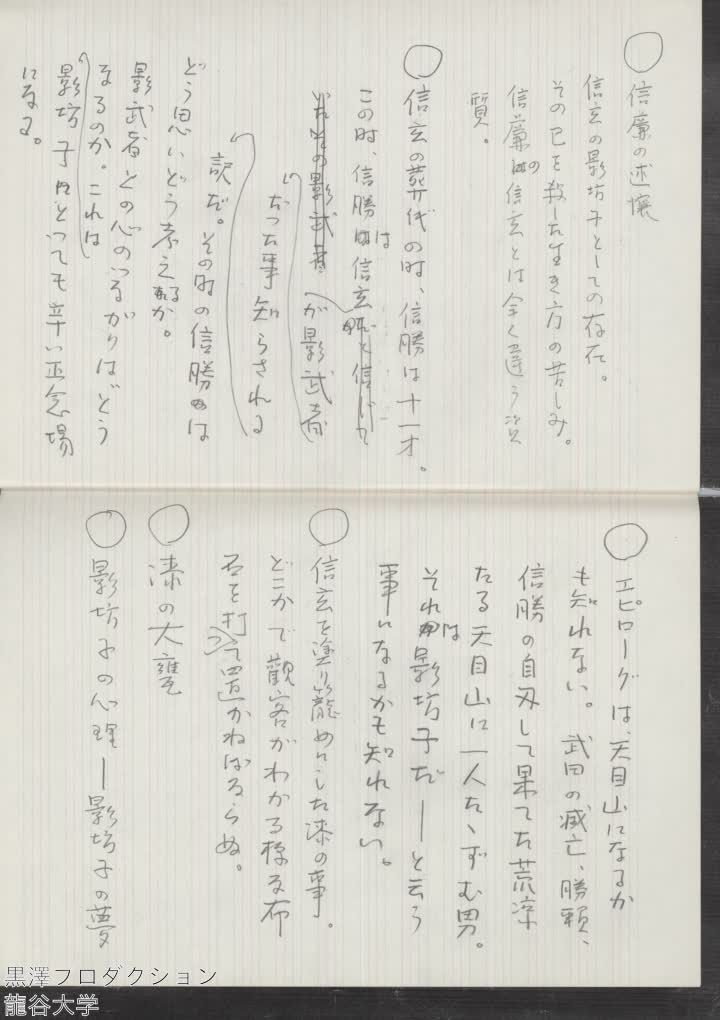 ○ 信廉の述懐
信玄の影坊子としての存在。
その己を殺した生き方の苦しみ。
信廉の信玄とは全く違う資
質。
○ 信玄の葬代の時、信勝は十一才。
この時、信勝は信玄と信じて
いたその影武者が影武者
だった事知らされる
訳だ。その時の信勝は
どう思いどう考えるか。
影武者との心のつながりはどう
なるのか。これは
影坊子にとっても辛い正念場
になる。
○ エピローグは、天目山になるか
も知れない。武田の滅亡、勝頼、
信勝の自刃して果てた荒涼
たる天目山に一人たゝずむ男。
それは影坊子だ―と云う
事になるかも知れない。
○ 信玄を塗り籠めにした漆の事。
どこかで觀客がわかる様な布
石を打って置かねばならぬ。
○ 漆の大甕
○ 影坊子の心理―影坊子の夢
黒澤プロダクション
龍谷大学